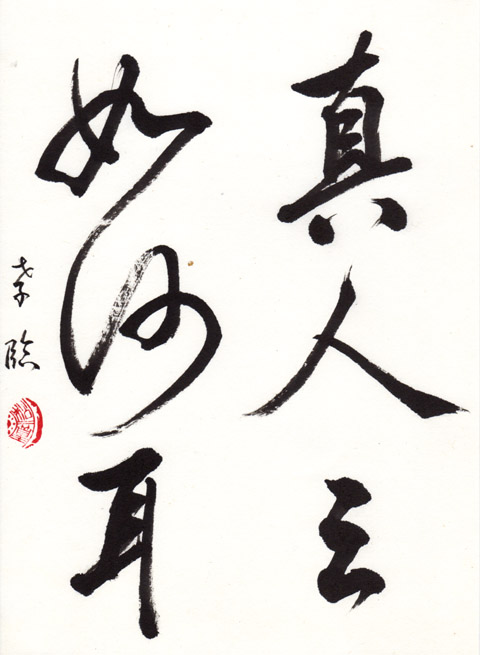 真人云
如何耳
孝臨